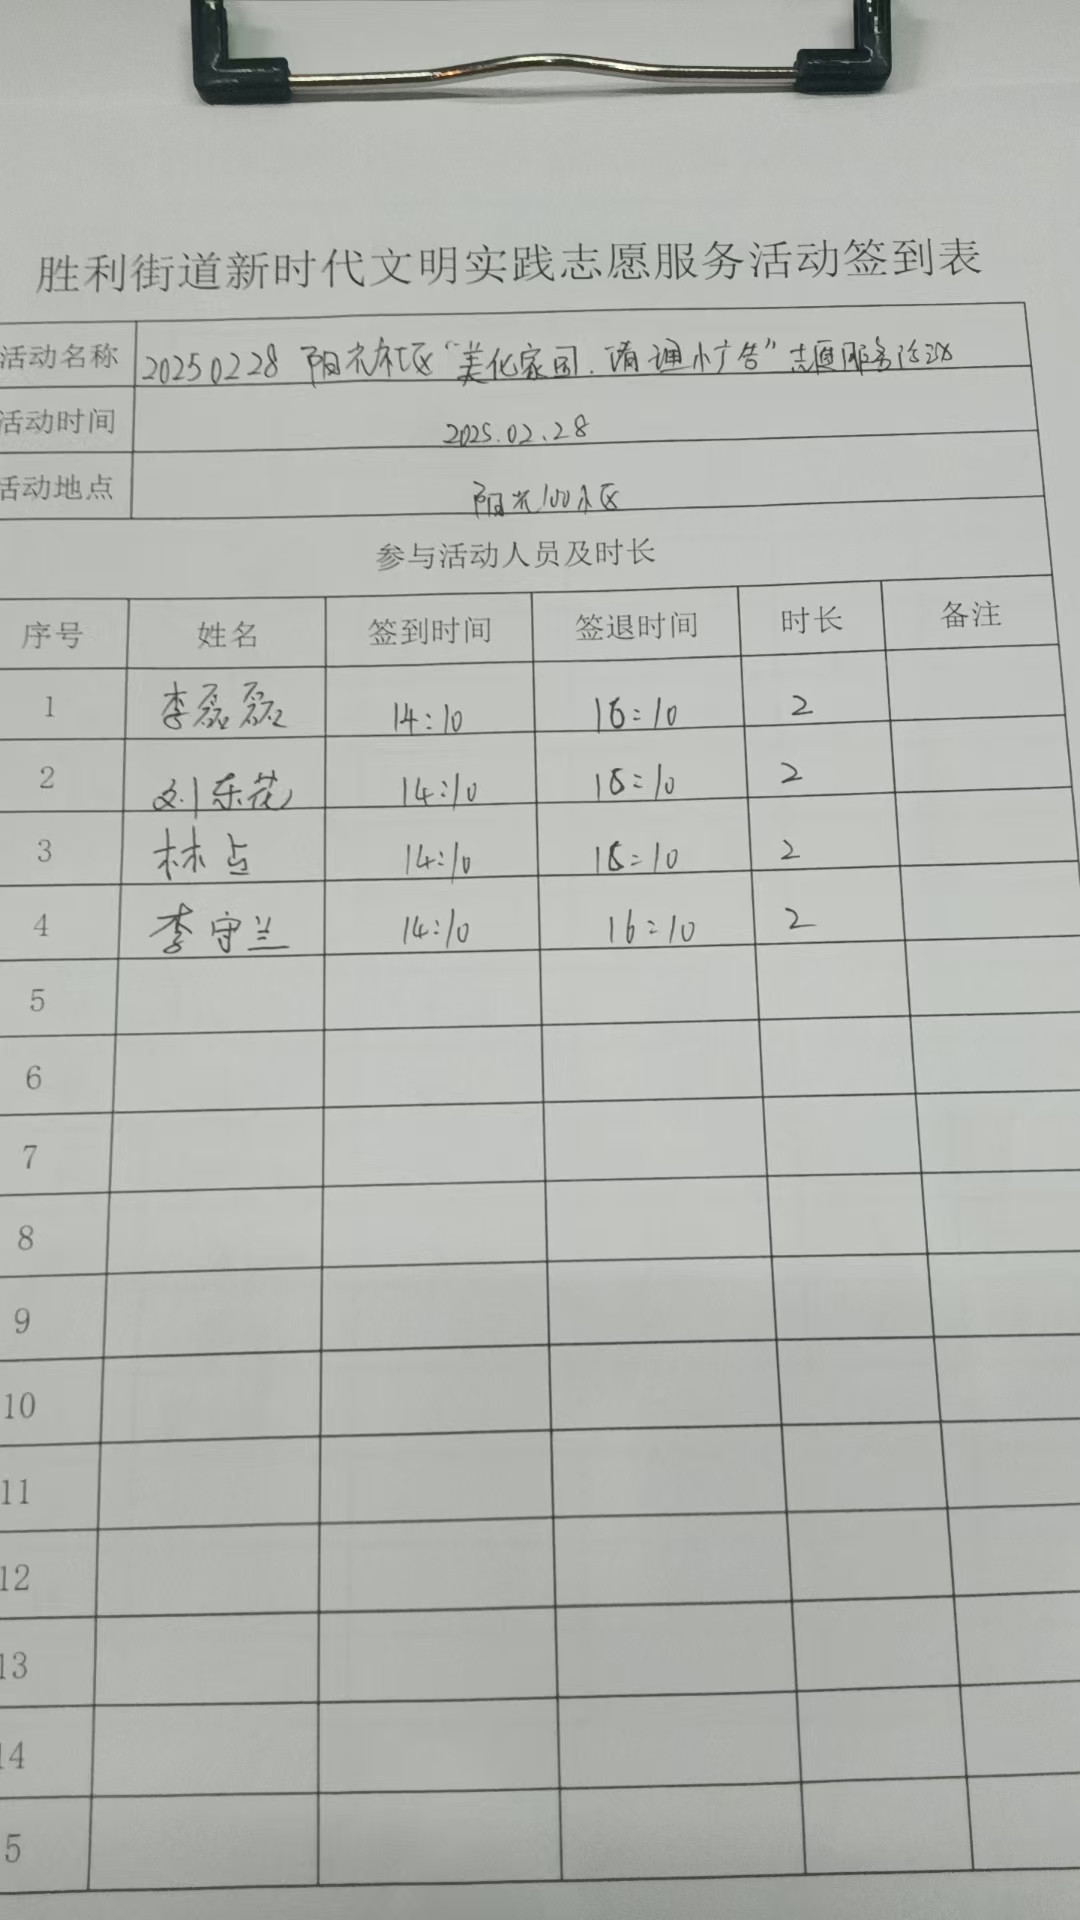 胜利街道新时代文明实践志愿服务活动签到表
活动名称 20250228 阳光社区“美化家园、清理小广告”志愿服务活动
活动时间 2025.02.28
活动地点 阳光100小区
参与活动人员及时长
序号 姓名 签到时间 签退时间 时长 备注
1 李磊磊 14:10 16:10 2
2 刘东花 14:10 16:10 2
3 林占 14:10 16:10 2
4 李守兰 14:10 16:10 2
5
6
7
8
9
10
11
12
13
14
5